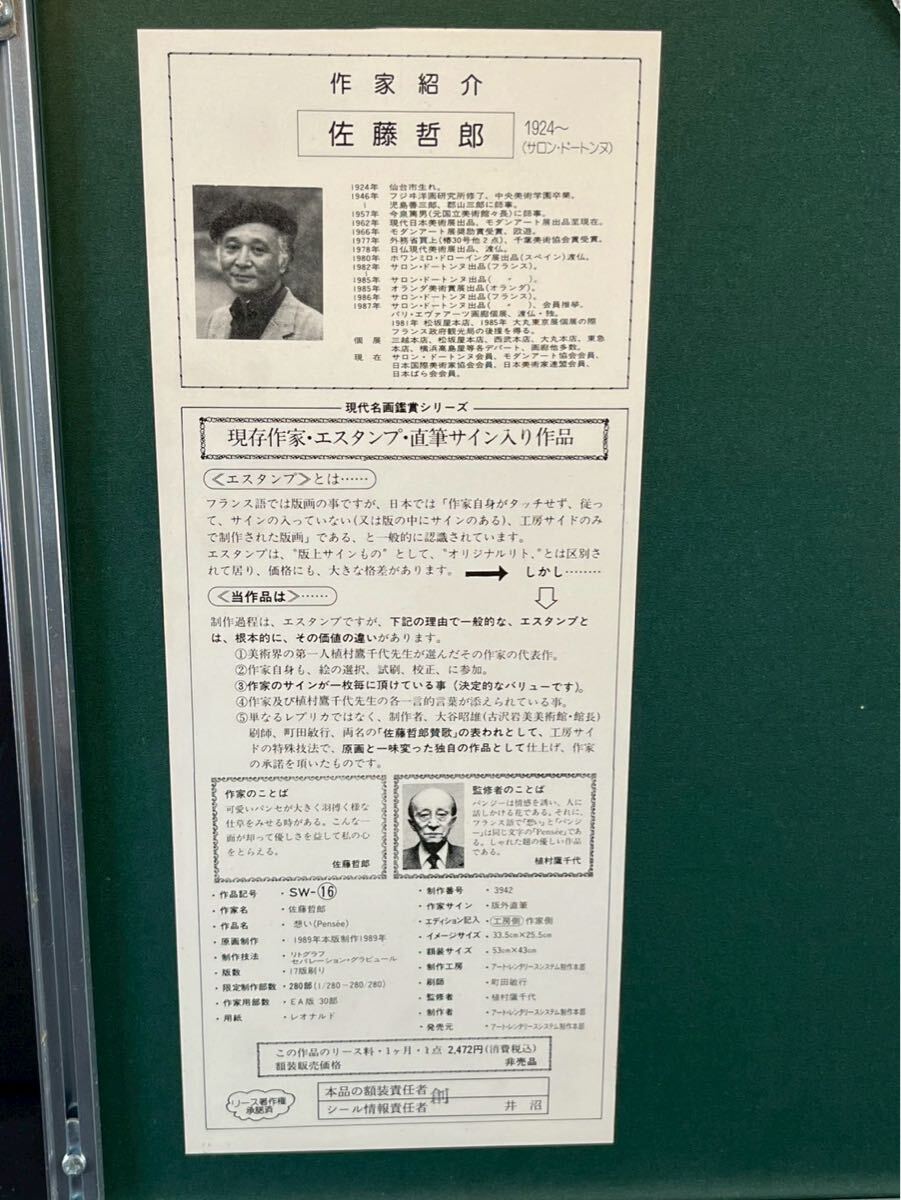 作家紹介
佐藤哲郎
1924〜
(サロン・ドートンヌ)
1924年 仙台市生れ。
1946年 フジヰ洋画研究所修了、中央美術学園卒業。
〜 児島善三郎、郡山三郎に師事。
1957年 今泉篤男(元国立美術館々長)に師事。
1962年 現代日本美術展出品、モダンアート展出品至現在。
1966年 モダンアート展奨励賞受賞、欧遊。
1977年 外務省買上(椿30号他2点)、千葉美術協会賞受賞。
1978年 日仏現代美術展出品、渡仏。
1980年 ホワンミロ・ドローイング展出品(スペイン)渡仏。
1982年 サロン・ドートンヌ出品(フランス)。
〜
1985年 サロン・ドートンヌ出品( 〃 )。
1985年 オランダ美術賞展出品(オランダ)。
1986年 サロン・ドートンヌ出品(フランス)。
1987年 サロン・ドートンヌ出品( 〃 )、会員推挙。
パリ・エヴァアーツ画廊個展、渡仏・独。
1981年 松坂屋本店、1985年 大丸東京展個展の際
フランス政府観光局の後援を得る。
個展 三越本店、松坂屋本店、西武本店、大丸本店、東急
本店、横浜高島屋等各デパート、画廊他多数。
現在 サロン・ドートンヌ会員、モダンアート協会会員、
日本国際美術家協会会員、日本美術家連盟会員、
日本ばら会会員。
現代名画鑑賞シリーズ
現存作家・エスタンプ・直筆サイン入り作品
《エスタンプ》とは……
フランス語では版画の事ですが、日本では「作家自身がタッチせず、従っ
て、サインの入っていない(又は版の中にサインのある)、工房サイドのみ
で制作された版画」である、と一般的に認識されています。
エスタンプは、"版上サインもの"として、"オリジナルリト、"とは区別さ
れて居り、価格にも、大きな格差があります。 → しかし……
《当作品は》……
制作過程は、エスタンプですが、下記の理由で一般的な、エスタンプと
は、根本的に、その価値の違いがあります。
①美術界の第一人植村鷹千代先生が選んだその作家の代表作。
②作家自身も、絵の選択、試刷、校正、に参加。
③作家のサインが一枚毎に頂けている事(決定的なバリューです)。
④作家及び植村鷹千代先生の各一言的言葉が添えられている事。
⑤単なるレプリカではなく、制作者、大谷昭雄(古沢岩美美術館・館長)
刷師、町田敏行、両名の「佐藤哲郎賛歌」の表われとして、工房サイ
ドの特殊技法で、原画と一味変った独自の作品として仕上げ、作家
の承諾を頂いたものです。
作家のことば
可愛いパンセが大きく羽搏く様な
仕草をみせる時がある。こんな一
面が却って優しさを益して私の心
をとらえる。
佐藤哲郎
監修者のことば
パンジーは情感を誘い、人に
話しかける花である。それに、
フランス語で「想い」と「パンジ
ー」は同じ文字の「Pensée」であ
る。しゃれた題の優しい作品
である。
植村鷹千代
・作品記号 ・SW-⑯
・作家名 ・佐藤哲郎
・作品名 ・想い(Pensée)
・原画制作 ・1989年本版制作1989年
・制作技法 ・リトグラフ
セパレーション・グラビュール
・版数 ・17版刷り
・限定制作部数 ・280部(1/280−280/280)
・作家用部数 ・EA版 30部
・用紙 ・レオナルド
・制作番号 ・3942
・作家サイン ・版外直筆
・エディション記入 ・工房側 作家側
・イメージサイズ ・33.5cm×25.5cm
・額装サイズ ・53cm×43cm
・制作工房 ・アートレンタリースシステム制作本部
・刷師 ・町田敏行
・監修者 ・植村鷹千代
・制作者 ・アートレンタリースシステム制作本部
・発売元 ・アートレンタリースシステム制作本部
この作品のリース料・1ヶ月・1点 2,472円(消費税込)
額装販売価格 非売品
リース著作権
承諾済
本品の額装責任者 創
シール情報責任者 井沼